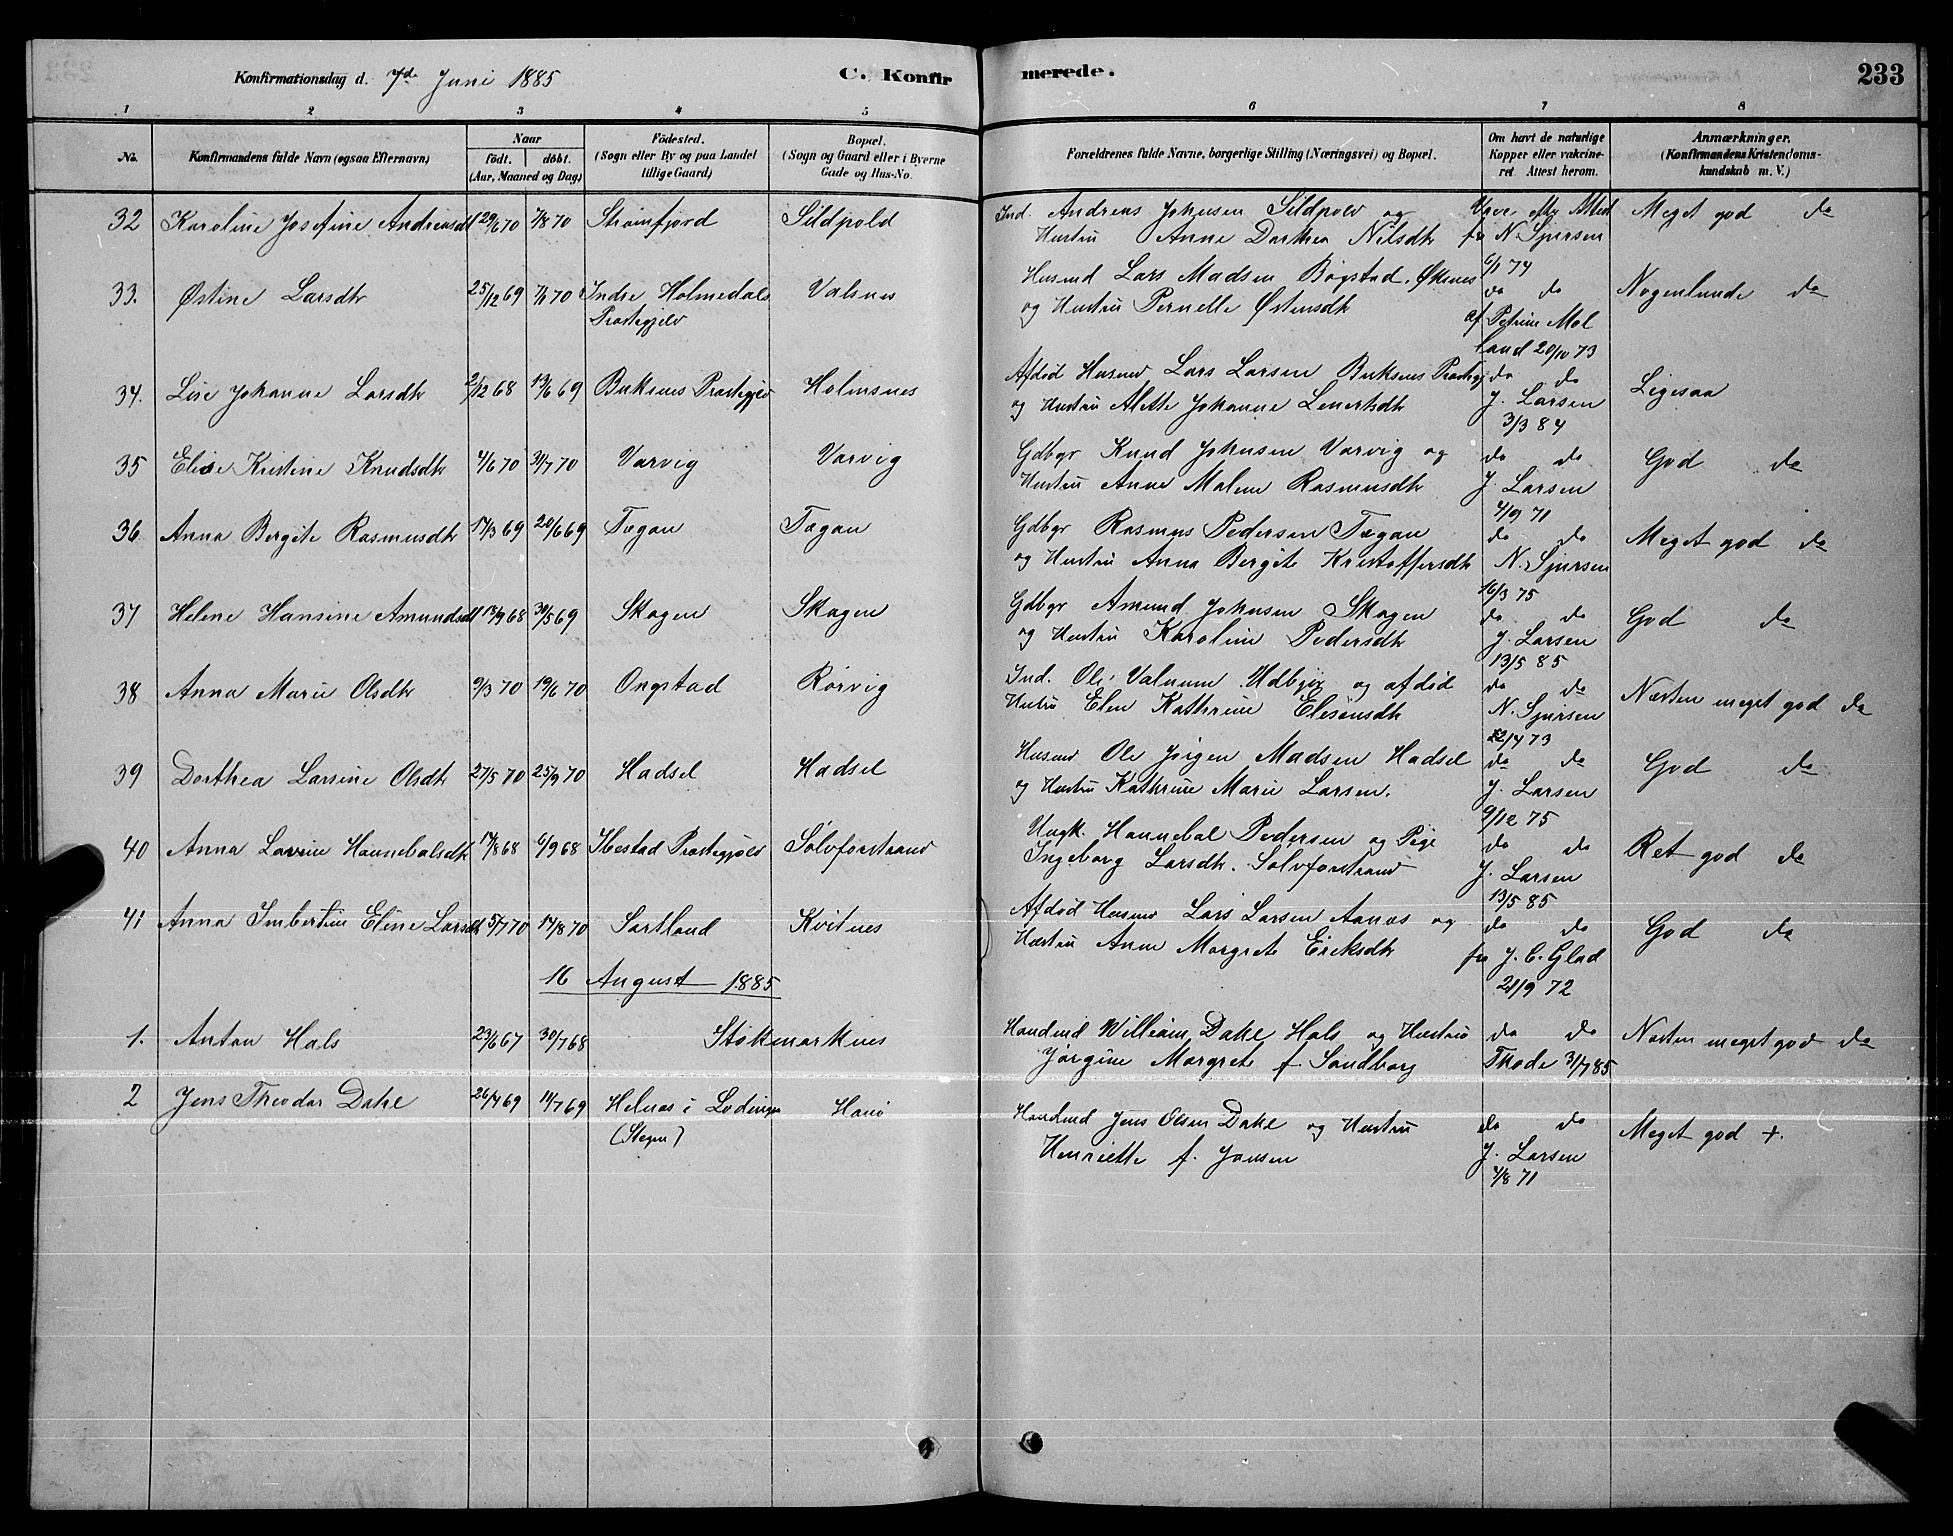 Konfirmationsdag d. 7de Juni 1885 C. Konfirmerede. 233
1 2 3 4 5 6 7 8
No. Konfirmandens fulde Navn (ogsaa Efternavn) Naar født. døbt. (Aar, Maaned og Dag) Fødested. (Sogn eller By og paa Landet tillige Gaard) Bopæl. (Sogn og Gaard eller i Byerne Gade og Hus-No. Forældrenes fulde Navne, borgerlige Stilling (Næringsvei) og Bopæl. Om havt de naturlige Kopper eller vakcineret. Attest herom. Anmærkninger. (Konfirmandens Kristendomskundskab m. V.)
32 Karoline Josefine Andreasdt 29/6 70 7/8 70 Strømfjord Sildpold Ind. Andreas Johnsen Sildpold og Meget god do
Hustru Anne Dorthea Nilsdtr fr N. Sjursen
6/1 74
33. Østine Larsdtr 25/12 69 7/6 70 Indre Holmedals Valsnes Husmd Lars Madsen Bogstad, Øksnes do do Nogenlunde do
Præstegjeld og Hustru Pernelle Østensdtr af Petrine Mol
land 20/10 73
34. Lise Johanne Larsdtr 2/12 68 13/6 69 Buksnes Præstegjeld Holmsnes Afdød Husmd Lars Larsen Buksnes Præstegj do do Ligesaa
og Hustru Alette Johanne Lenertsdtr J. Larsen
3/3 84
35 Elise Kristine Knudsdtr 4/6 70 31/7 70 Varvig Varvig Gdbgr Knud Johnsen Varvig og do do God do
Hustru Anne Malene Rasmusdtr J. Larsen
4/9 71
36. Anna Bergite Rasmusdtr 17/3 69 20/6 69 Tægan Tægan Gdbgr Rasmus Pedersen Tægan do do Meget god do
og Hustru Anna Bergite Kristoffersdtr N. Sjursen
16/3 75
37 Helene Hansine Amundsdt 18/9 68 30/5 69 Skagen Skagen Gdbgr Amund Johnsen Skagen do do God do
og Hustru Karoline Pedersdtr J. Larsen
13/5 85
38 Anna Marie Olsdtr 9/3 70 19/6 70 Ongstad Rørvig Ind. Ole Valnum Udbjør og afdød do do Næsten meget god do
Hustru Elen Kathrine Elesensdtr N. Sjursen
22/4 73
39 Dorthea Larsine Olsdtr 27/5 70 25/9 70 Hadsel Hadsel Husmd Ole Jørgen Madsen Hadsel do do God do
og Hustru Kathrine Marie Larsen. J. Larsen
9/12 75
40 Anna Lovise Hannebalsdtr 17/8 68 6/9 68 Ibestad Præstegjeld Sølvforstrand Ungk. Hannebal Pedersen og Pige do do Ret god do
Ingeborg Larsdtr. Solvforstrand J. Larsen
13/5 85
41 Anna Imbertine Elene Larsdtr 5/7 70 14/8 70 Sortland Kvitnes Afdød Husmd Lars Larsen Aanæs og do do God do
Hustru Anne Margrete Eriksdtr fra J. C. Glad
21/9 72
16 August 1885
1. Anton Hals 23/6 67 30/7 68 Stokmarknes Handlmd William Dake Hals og Hustru do do Næsten meget god do
Jørgine Margrete f. Sandborg Thode 31/7 85
2 Jens Theodor Dake 26/4 69 11/7 69 Helnæs i Lødingen Hanø Handlmd Jens Olsen Dake og Hustru do do Meget god +.
(Stegen) Henriette f. Jansen J. Larsen
4/8 71